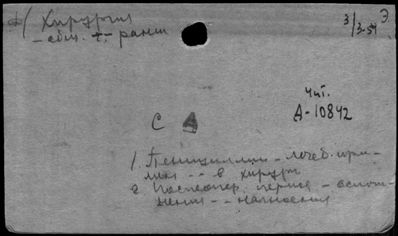 2/ Хирургия
3/3-54 Э.
– общ. т. – ранш
Чит.
А-10842
С
1. Пенициллин – лечеб. при-
мен. – – в хирург
2 Послеопер. период – ослож-
нения – – нагноения